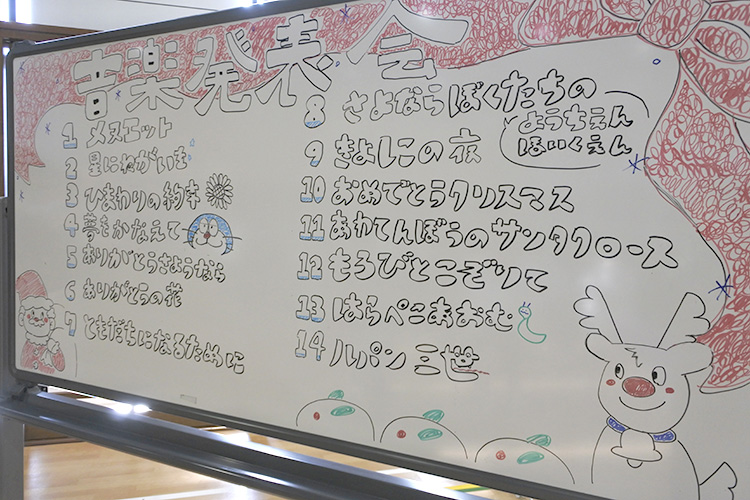 音楽発表会
1 メヌエット
2 星にねがいを
3 ひまわりの約束
4 夢をかなえて
5 ありがとうさようなら
6 ありがとうの花
7 ともだちになるために
8 さよならぼくたちの
ようちえん
ほいくえん
9 きよしこの夜
10 おめでとうクリスマス
11 あわてんぼうのサンタクロース
12 もろびとこぞりて
13 はらぺこあおむし
14 ルパン三世